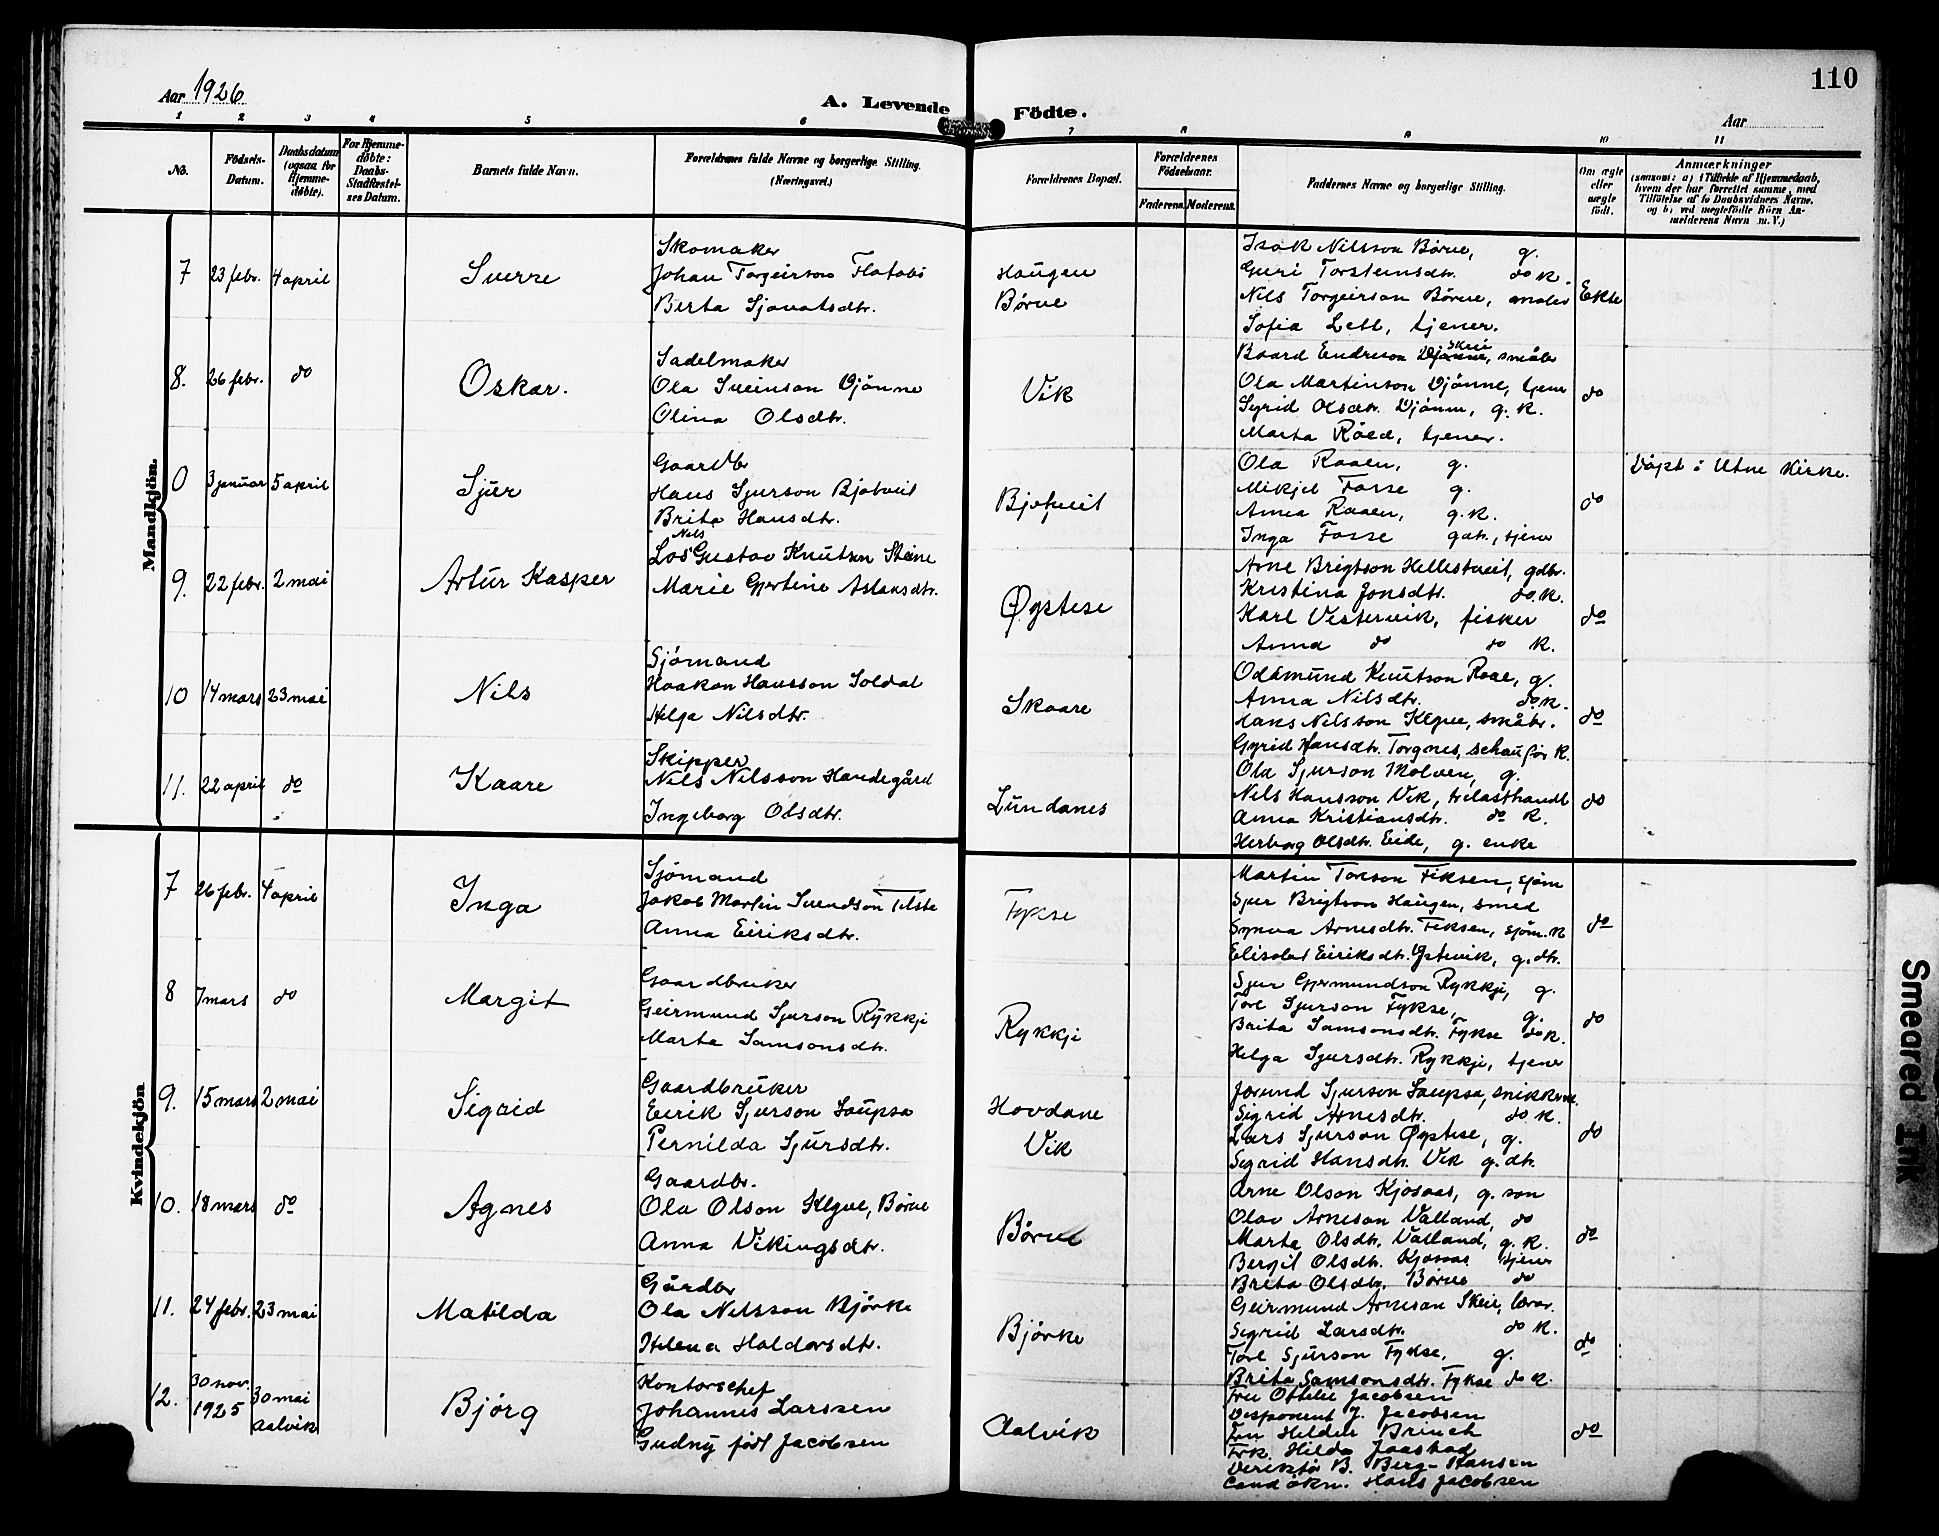 Aar 1926
A. Levende Födte.
110
Aar
1
2
3
4
5
6
7
8
9
10
11
No.
Födsels-Datum.
Daabsdatum (ogsaa for Hjemme-döbte).
For Hjemme-döbte: Daabs-Stadfæstel-ses Datum.
Barnets fulde Navn.
Forældrenes fulde Navne og borgerlige Stilling.
(Næringsvei.)
Forældrenes Bopæl.
Forældrenes Födselsaar.
Faderens.
Moderens.
Faddernes Navne og borgerlige Stilling.
Om ægte eller uægte födt.
Anmærkninger
(saasom: a) i Tilfælde af Hjemmedaab,
hvem der har forrettet samme, med
Tilföielse af to Daabsvidners Navne,
og b) ved uægtefödte Börn An-
melderens Navn m. V.)
Mandkjön.
7 23 febr. 4 april Sverre
Skomaker
Johan Torgeirson Flatabø
Berta Sjovatsdtr.
Haugen
Børve
Isak Nilsson Børve, g.
Guri Torsteinsdtr. do K.
Nils Torgeirson Børve, maler
Sofia Lell, tjener.
Ekte
8. 26 febr. do Oskar.
Sadelmaker
Ola Sveinson Djønne
Olina Olsdtr.
Vik
Baard Endreson Djønne Skeie, småbr
Ola Martinson Djønne, tjener
Sigrid Olsdtr. Djønne, g. K.
Marta Røed, tjener.
do
0 3 januar 5 april Sjur
Gaardbr
Hans Sjurson Bjotveit
Brita Hansdtr.
Bjotveit
Ola Raaen, g.
Mikjel Fosse g.
Anna Raaen, g.K.
Inga Fosse gdtr., tjener
do
Døpt i Utne Kirke.
9. 22 febr. 2 mai Artur Kasper
Los Nils Gustav Knutson Steine
Marie Gjertine Aslaksdtr.
Øystese
Arne Brigtson Hellestveit, gdbr.
Kristina Jonsdtr. do K.
Karl Vestervik, fisker
Anna do do K.
do
10 14 mars 23 mai Nils
Sjømand
Haakon Hansson Soldal
Helga Nilsdtr.
Skaare
Oddmund Knutson Raae, g.
Anna Nilsdtr. do K.
Hans Nilsson Klyve, småbr.
Gyrid Hansdtr. Torgnes, schauför K.
do
11. 22 april do Kaare
Skipper
Nils Nilsson Handegård
Ingeborg Olsdtr.
Lundanes
Ola Sjurson Molven, g.
Nils Hansson Vik, trelasthandl
Anna Kristiansdtr. do K.
Herborg Olsdtr. Eide, g. enke
do
Kvindekjön
7 26 febr. 4 april Inga
Sjømand
Jakob Martin Svendson Tilste
Anna Eiriksdtr.
Fykse
Martin Torson Fiksen, sjøm
Sjur Brigtson Haugen, smed
Synva Arnesdtr. Fiksen, sjøm. K
Elisabet Eiriksdtr. Ystevik, g.dtr.
do
8 7 mars do Margit
Gaardbruker
Geirmund Sjurson Rykkje
Marta Samsonsdtr.
Rykkje
Sjur Gjermundson Rykkje, g.
Torl Sjurson Fykse, g.
Brita Samsonsdtr. Fykse do K.
Helga Sjursdtr. Rykkje, tjener
do
9. 15 mars 2 mai Sigrid
Gaardbruker
Eirik Sjurson Soupsa
Pernilda Sjursdtr.
Hovdane
Vik
Jorund Sjurson Saupsa, snikker
Sigrid Arnesdtr. do K.
Lars Sjurson Øystese, g.
Sigrid Hansdtr. Vik g.dtr.
do
10. 18 mars do Agnes
Gaardbr.
Ola Olson Klyve, Børve
Anna Vikingsdtr.
Børve
Arne Olson Kjosaas, g. son
Olav Arneson Valland, do
Marta Olsdtr. Valland, g. K.
Bergit Olsdtr. Kjosaas tjener
Brita Olsdtr. Børve do
do
11. 24 febr. 23 mai Matilda
Gårdbr
Ola Nilsson Bjørke
Helena Haldorsdtr.
Bjørke
Geirmund Arneson Skeie, lærar.
Sigrid Larsdtr. do K.
Torl Sjurson Fykse, g.
Brita Samsonsdtr. Fykse do K.
do
12. 30 nov. 1925 30 mai Aalvik Bjørg
Kontorschef
Johannes Larssen
Gudny født Jacobsen
Aalvik
Fru Othelie Jacobsen
Disponent J. Jacobsen
Fru Helden Brinch
Frk. Hilda Jaastad
Direktør B. Berg-Hansen
Cand økn. Hans Jacobsen
do
Smeared Ink